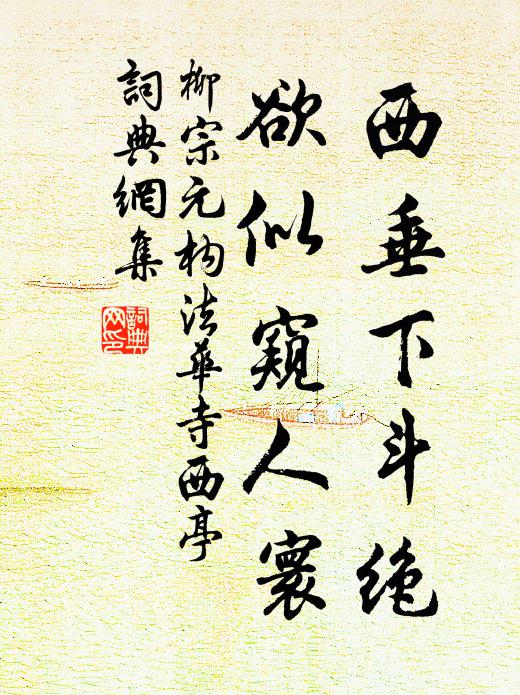 西垂下斗绝
欲似窥人寰
柳宗元构法华寺西亭
词典网集
词典网印